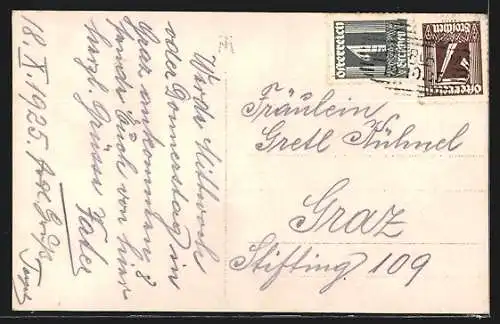 Werde Mittwoch
oder Donnerstag in
Graz ankommen &
sende Euch von hier
herzl. Grüsse Vater
18. X. 1925.
Fräulein
Gretl Kühnel
Graz
Stifting 109
Österreich
Groschen
Österreich
Groschen